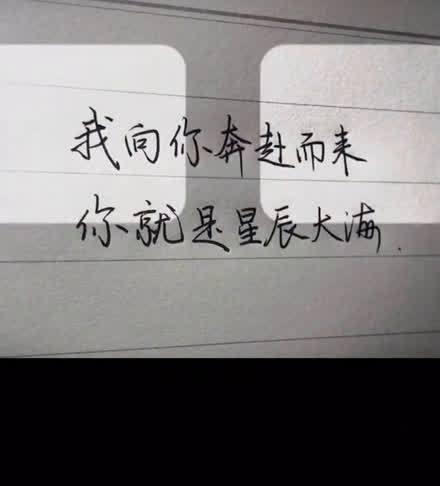 我向你奔赴而来
你就是星辰大海.